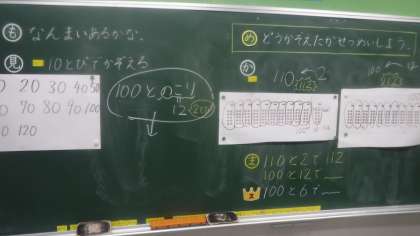 も なんまいあるかな。
見 10とびでかぞえる
20 30 40 50
70 80 90 100
120
100と のこり
12
め どうかぞえたかせつめいしよう。
か 110と2
ま 110と2で112
100と12で
100と6で